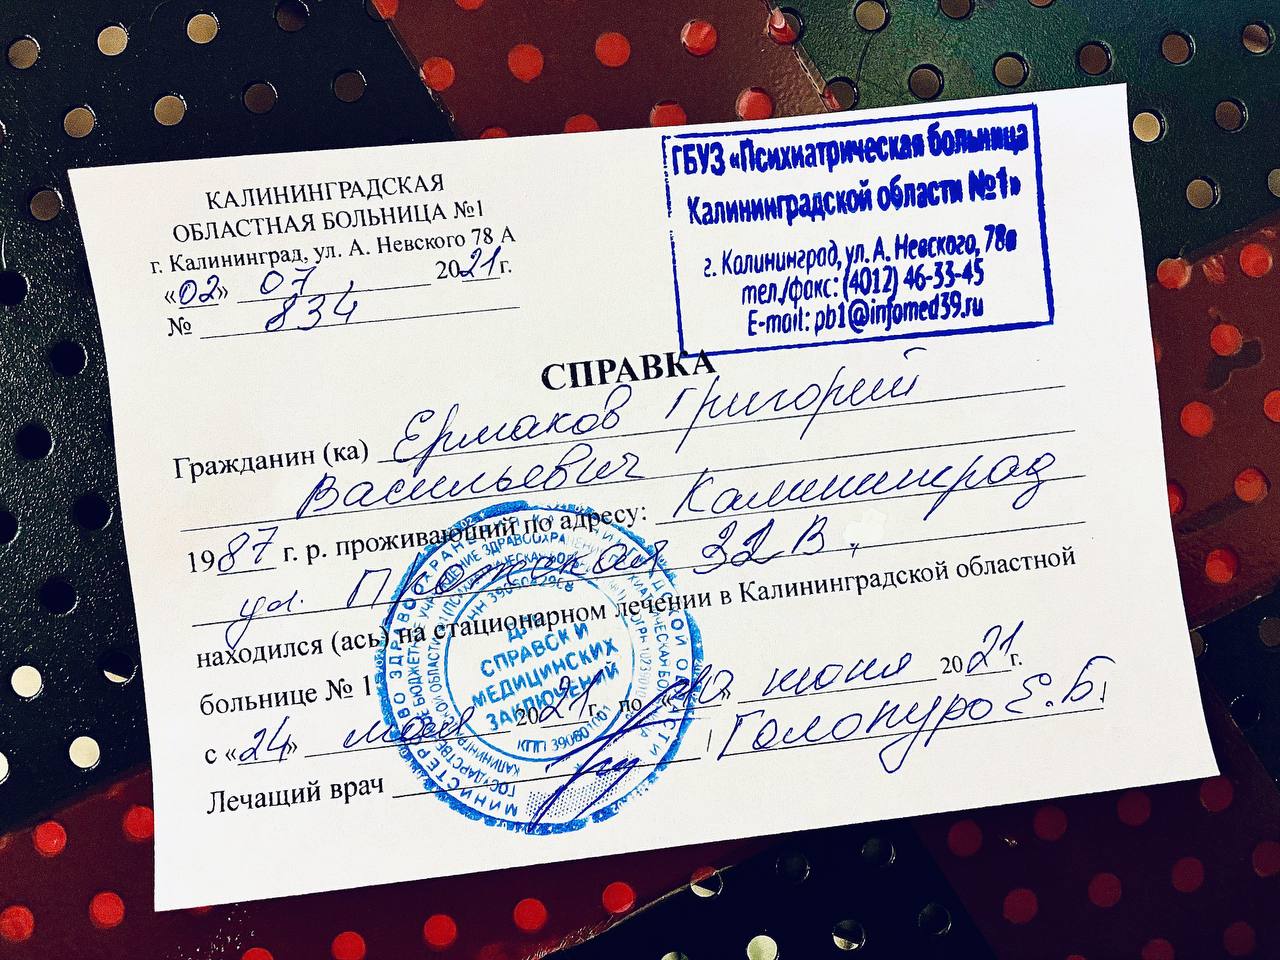 КАЛИНИНГРАДСКАЯ
ОБЛАСТНАЯ БОЛЬНИЦА №1
г. Калининград, ул. А. Невского 78 А
«02» 07 2021г.
№ 834
ГБУЗ «Психиатрическая больница
Калининградской области №1»
г. Калининград, ул. А. Невского, 78а
тел./факс: (4012) 46-33-45
E-mail: pb1@infomed39.ru
СПРАВКА
Гражданин (ка) Ермаков Григорий
Васильевич
1987 г. р. проживающий по адресу: Калининград
ул. 32 В,
находился (ась) на стационарном лечении в Калининградской областной
больнице № 1
с «24» мая 2021г. по июня 2021г.
Лечащий врач Голопуро Е.Б.
ДЛЯ
СПРАВОК И
МЕДИЦИНСКИХ
ЗАКЛЮЧЕНИЙ
КПП 390601001